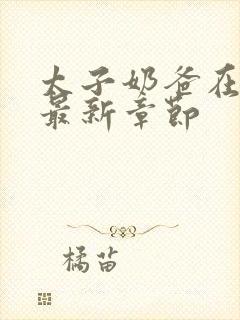 太子奶爸在
最新章节
橘苗